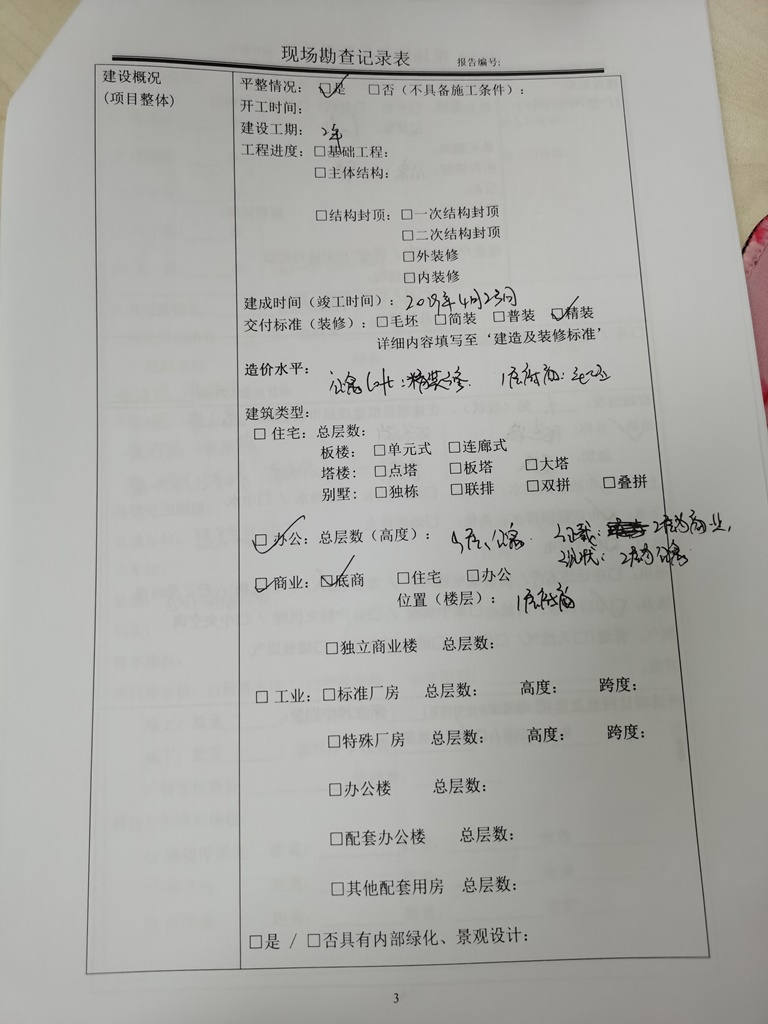 现场勘查记录表 报告编号:
建设概况
(项目整体)
平整情况: ☑是 □否（不具备施工条件）:
开工时间:
建设工期: 2年
工程进度: □基础工程:
□主体结构:
□结构封顶: □一次结构封顶
□二次结构封顶
□外装修
□内装修
建成时间（竣工时间）: 2019年4月23日
交付标准（装修）: □毛坯 □简装 □普装 ☑精装
详细内容填写至‘建造及装修标准’
造价水平:
公寓loft:精装修. 1层底商:毛坯
建筑类型:
□ 住宅: 总层数:
板楼: □单元式 □连廊式
塔楼: □点塔 □板塔 □大塔
别墅: □独栋 □联排 □双拼 □叠拼
☑办公: 总层数（高度）: 层、公寓 证载: 2层为商业,
现状: 2层为公寓
☑商业: ☑底商 □住宅 □办公
位置（楼层）: 1层底商
□独立商业楼 总层数:
□ 工业: □标准厂房 总层数: 高度: 跨度:
□特殊厂房 总层数: 高度: 跨度:
□办公楼 总层数:
□配套办公楼 总层数:
□其他配套用房 总层数:
□是 / □否具有内部绿化、景观设计:
3